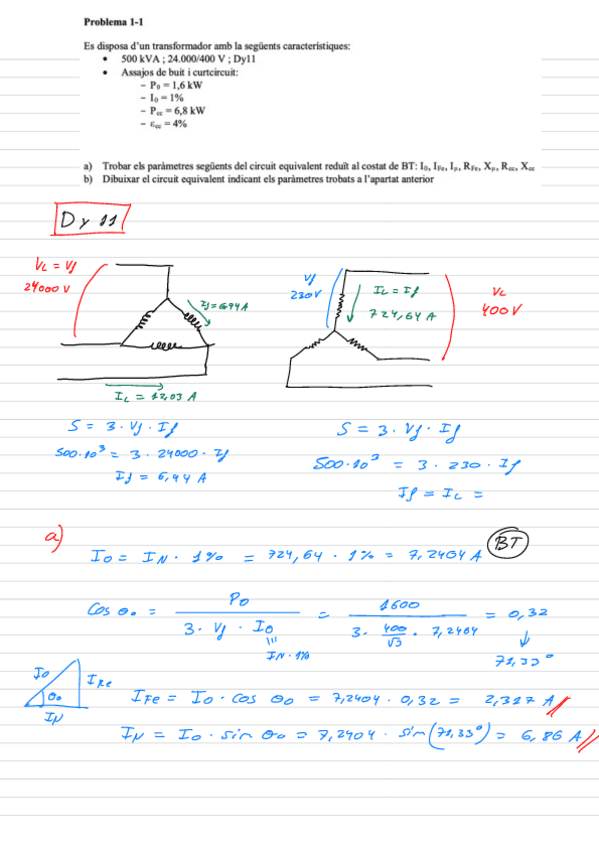 Problema 1-1
Es disposa d'un transformador amb la següents característiques:
• 500 kVA ; 24.000/400 V ; Dy11
• Assajos de buit i curtcircuit:
– P₀ = 1,6 kW
– I₀ = 1%
– Pcc = 6,8 kW
– εcc = 4%
a) Trobar els paràmetres següents del circuit equivalent reduït al costat de BT: I₀, I_Fe, I_μ, R_Fe, X_μ, Rcc, Xcc
b) Dibuixar el circuit equivalent indicant els paràmetres trobats a l'apartat anterior
Dy 11
VL = Vf
24000 V
If = 6,94 A
IL = 12,03 A
Vf
230 V
IL = If
724,64 A
VL
400 V
S = 3 · Vf · If
500·10³ = 3 · 24000 · If
If = 6,94 A
S = 3 · Vf · If
500·10³ = 3 · 230 · If
If = IL =
a)
I0 = IN · 1% = 724,64 · 1% = 7,2464 A
BT
Cos θ₀ = P0 / 3 · Vf · I0 = 1600 / 3 · 400/√3 · 7,2464 = 0,32
IN · 1%
71,33°
I0
IFe
θ₀
Iμ
IFe = I0 · cos θ0 = 7,2464 · 0,32 = 2,327 A
Iμ = I0 · sin θ0 = 7,2464 · sin(71,33°) = 6,86 A